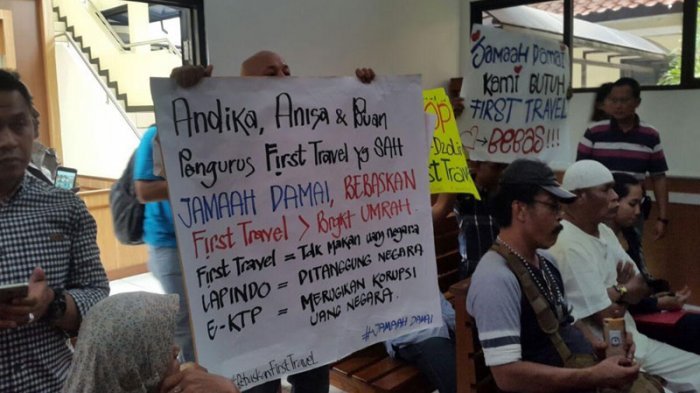 Andika, Anisa & Kiki
Pengurus First Travel yg SAH
JAMAAH DAMAI, BEBASKAN
First Travel > UMRAH.
First Travel = Tdk Makan uang negara
LAPINDO = DITANGGUNG NEGARA
E-KTP = MERUGIKAN KORUPSI
UANG NEGARA.
#JAMAAH DAMAI
#BebaskanFirstTravel
Jamaah Damai
Kami BUTUH
FIRST TRAVEL
BEBAS!!!
First Travel